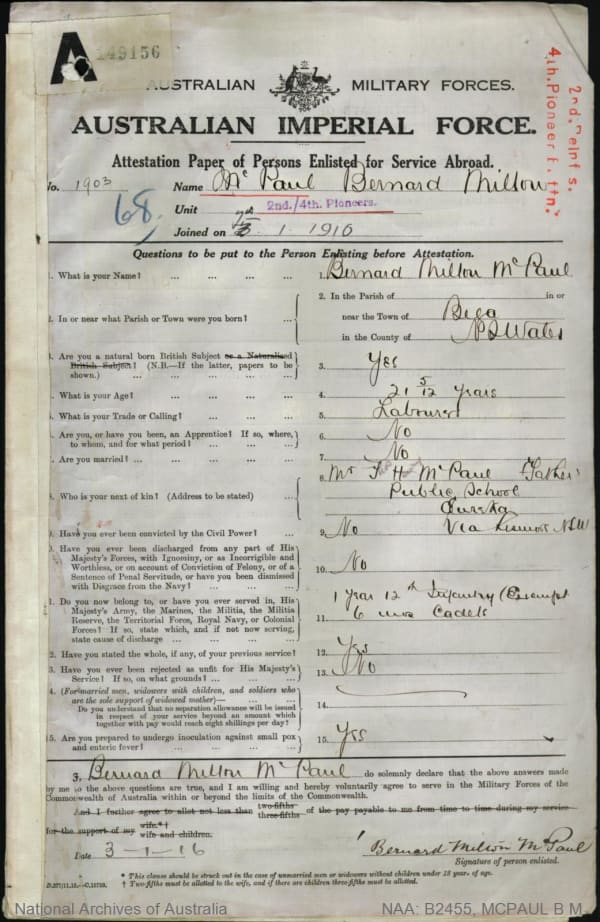 A 149156
AUSTRALIAN MILITARY FORCES.
AUSTRALIAN IMPERIAL FORCE.
2nd. Reinf s.
4th. Pioneer B ttn.
Attestation Paper of Persons Enlisted for Service Abroad.
No. 1903 Name Mc Paul Bernard Milton
68
Unit 2nd./4th. Pioneers.
Joined on 3. 1. 1916
Questions to be put to the Person Enlisting before Attestation.
1. What is your Name? ... ... ... 1. Bernard Milton McPaul
2. In or near what Parish or Town were you born? ... 2. In the Parish of in or
near the Town of Bega
in the County of N S Wales
3. Are you a natural born British Subject or a Naturalised British Subject? (N.B.—If the latter, papers to be shown.) ... ... ... 3. Yes
4. What is your Age? ... ... ... 4. 21 5/12 years
5. What is your Trade or Calling? ... ... 5. Labourer
6. Are you, or have you been, an Apprentice? If so, where, to whom, and for what period? ... ... ... 6. No
7. Are you married? ... ... ... ... 7. No
8. Who is your next of kin? (Address to be stated) ... 8. Mr T H McPaul Father
Public School
Eureka
Via Lismore NSW
9. Have you ever been convicted by the Civil Power? ... 9. No
10. Have you ever been discharged from any part of His Majesty's Forces, with Ignominy, or as Incorrigible and Worthless, or on account of Conviction of Felony, or of a Sentence of Penal Servitude, or have you been dismissed with Disgrace from the Navy? ... ... 10. No
11. Do you now belong to, or have you ever served in, His Majesty's Army, the Marines, the Militia, the Militia Reserve, the Territorial Force, Royal Navy, or Colonial Forces? If so, state which, and if not now serving, state cause of discharge ... ... ... 11. 1 Year 12th Infantry (Exempt
6 mos Cadets
12. Have you stated the whole, if any, of your previous service? 12. Yes
13. Have you ever been rejected as unfit for His Majesty's Service? If so, on what grounds? ... ... 13. No
14. (For married men, widowers with children, and soldiers who are the sole support of widowed mother)—
Do you understand that no separation allowance will be issued in respect of your service beyond an amount which together with pay would reach eight shillings per day? 14.
15. Are you prepared to undergo inoculation against small pox and enteric fever? ... ... ... 15. Yes
I, Bernard Milton McPaul do solemnly declare that the above answers made
by me to the above questions are true, and I am willing and hereby voluntarily agree to serve in the Military Forces of the
Commonwealth of Australia within or beyond the limits of the Commonwealth.
And I further agree to allot not less than two-fifths three-fifths of the pay payable to me from time to time during my service
for the support of my wife.*† wife and children.
Date 3-1-16
Bernard Milton McPaul
Signature of person enlisted.
* This clause should be struck out in the case of unmarried men or widowers without children under 18 year. of age.
† Two-fifths must be allotted to the wife, and if there are children three-fifths must be allotted.
National Archives of Australia
NAA: B2455, MCPAUL B M